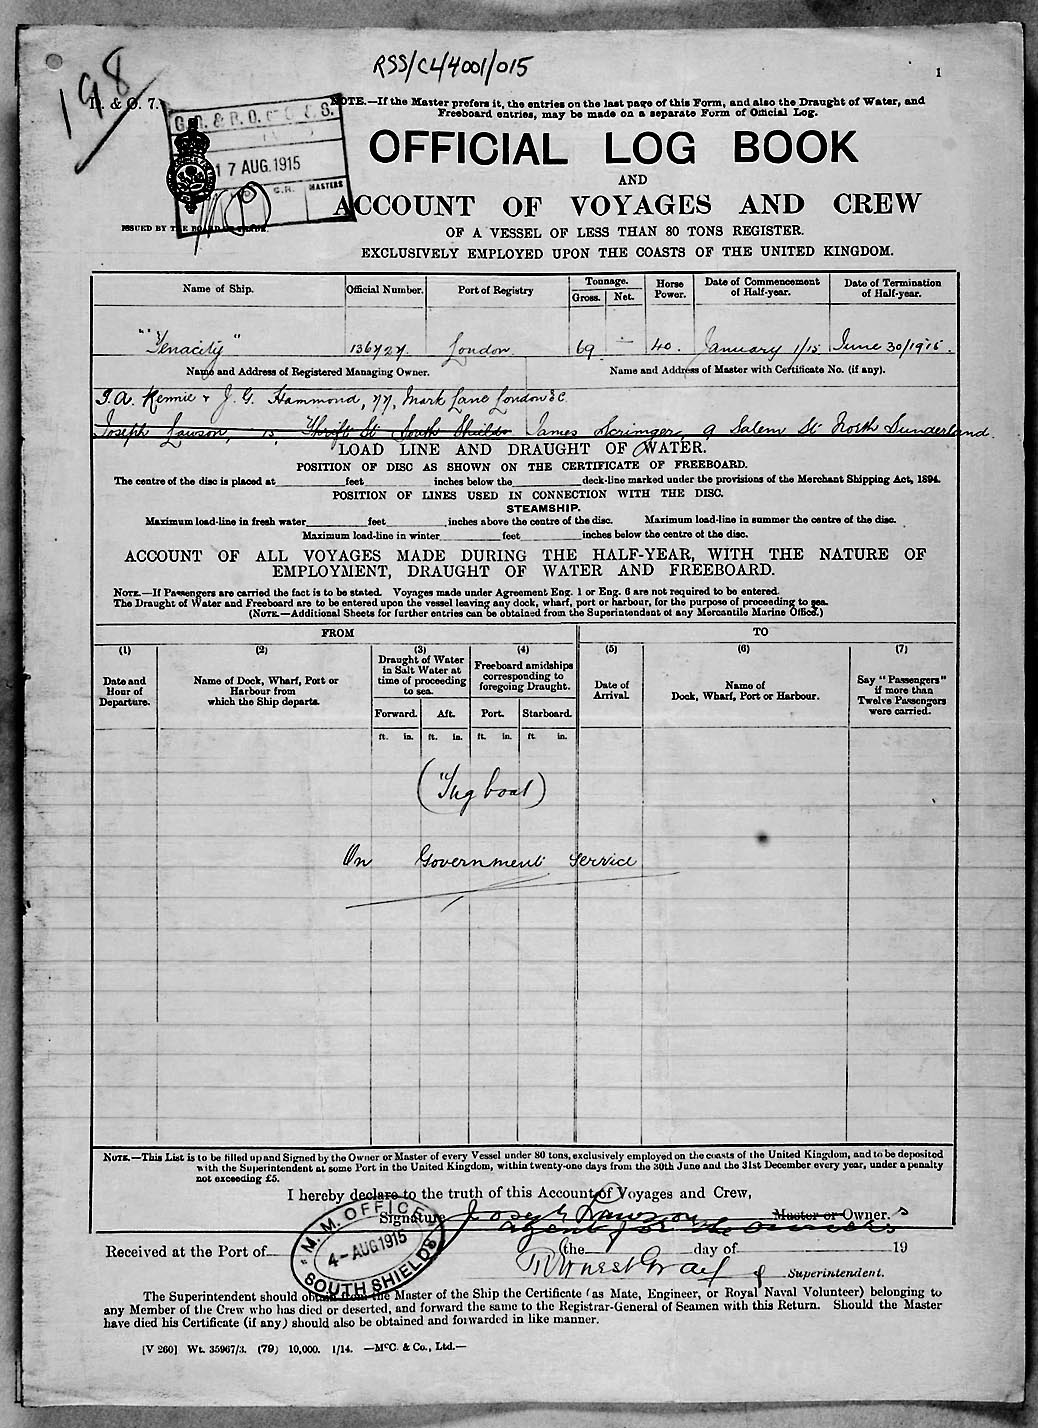 RSS/CL/4001/015
198
1
& O. 7.
NOTE.—If the Master prefers it, the entries on the last page of this Form, and also the Draught of Water, and
Freeboard entries, may be made on a separate Form of Official Log.
17 AUG. 1915
C.R. MASTERS
ISSUED BY THE BOARD OF TRADE.
OFFICIAL LOG BOOK
AND
ACCOUNT OF VOYAGES AND CREW
OF A VESSEL OF LESS THAN 80 TONS REGISTER.
EXCLUSIVELY EMPLOYED UPON THE COASTS OF THE UNITED KINGDOM.
Name of Ship. Official Number. Port of Registry Tonnage. Gross. Net. Horse Power. Date of Commencement of Half-year. Date of Termination of Half-year.
"Tenacity" 136727. London 69 — 40. January 1/15 June 30/1915.
Name and Address of Registered Managing Owner. Name and Address of Master with Certificate No. (if any).
T.A. Rennie & J. G. Hammond, 77, Mark Lane London E.C.
Joseph Lawson, 15, Thrift St South Shields James Scrimger, 9 Salem St North Sunderland.
LOAD LINE AND DRAUGHT OF WATER.
POSITION OF DISC AS SHOWN ON THE CERTIFICATE OF FREEBOARD.
The centre of the disc is placed at feet inches below the deck-line marked under the provisions of the Merchant Shipping Act, 1894.
POSITION OF LINES USED IN CONNECTION WITH THE DISC.
STEAMSHIP.
Maximum load-line in fresh water feet inches above the centre of the disc. Maximum load-line in summer the centre of the disc.
Maximum load-line in winter feet inches below the centre of the disc.
ACCOUNT OF ALL VOYAGES MADE DURING THE HALF-YEAR, WITH THE NATURE OF
EMPLOYMENT, DRAUGHT OF WATER AND FREEBOARD.
NOTE.—If Passengers are carried the fact is to be stated. Voyages made under Agreement Eng. 1 or Eng. 6 are not required to be entered.
The Draught of Water and Freeboard are to be entered upon the vessel leaving any dock, wharf, port or harbour, for the purpose of proceeding to sea.
(NOTE.—Additional Sheets for further entries can be obtained from the Superintendent of any Mercantile Marine Office.)
FROM TO
(1) (2) (3) (4) (5) (6) (7)
Date and Hour of Departure.
Name of Dock, Wharf, Port or Harbour from which the Ship departs.
Draught of Water in Salt Water at time of proceeding to sea.
Freeboard amidships corresponding to foregoing Draught.
Date of Arrival.
Name of Dock, Wharf, Port or Harbour.
Say "Passengers" if more than Twelve Passengers were carried.
Forward. Aft. Port. Starboard.
ft. in. ft. in. ft. in. ft. in.
(Tug boat)
On Government Service
NOTE.—This List is to be filled up and Signed by the Owner or Master of every Vessel under 80 tons, exclusively employed on the coasts of the United Kingdom, and to be deposited
with the Superintendent at some Port in the United Kingdom, within twenty-one days from the 30th June and the 31st December every year, under a penalty
not exceeding £5.
I hereby declare to the truth of this Account of Voyages and Crew,
Signature Joseph Lawson Master or Owner.s
agent for the owners
M. M. OFFICE
4 - AUG 1915
SOUTH SHIELDS
Received at the Port of the day of 19
Superintendent.
The Superintendent should obtain from the Master of the Ship the Certificate (as Mate, Engineer, or Royal Naval Volunteer) belonging to
any Member of the Crew who has died or deserted, and forward the same to the Registrar-General of Seamen with this Return. Should the Master
have died his Certificate (if any) should also be obtained and forwarded in like manner.
[V 260] Wt. 35967/3. (79) 10,000. 1/14. —McC. & Co., Ltd.—